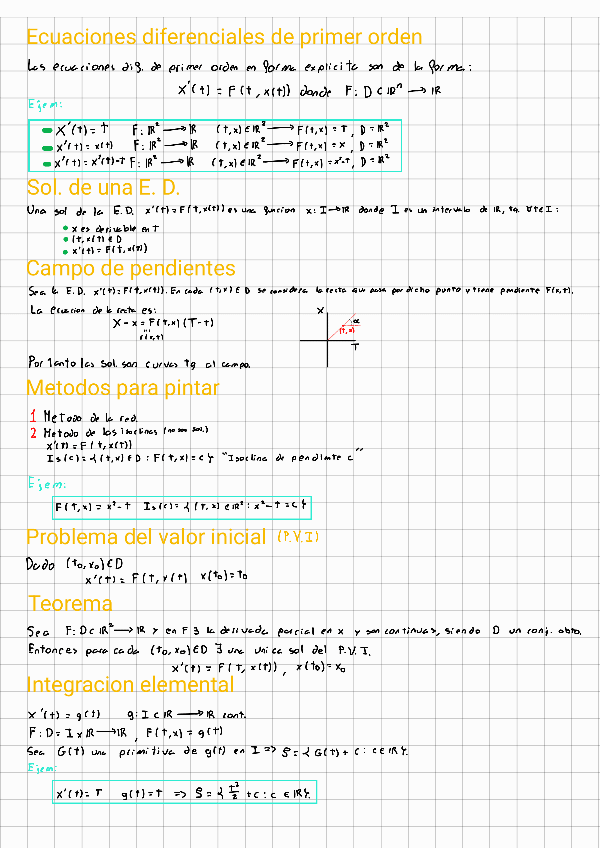 Ecuaciones diferenciales de primer orden
Las ecuaciones dif. de primer orden en forma explicita son de la forma:
X'(t) = F(t, x(t)) donde F: D ⊂ ℝⁿ → ℝ
Ejem:
X'(t) = T F: ℝ² → ℝ (t,x) ∈ ℝ² → F(t,x) = T, D = ℝ²
x'(t) = x(t) F: ℝ² → ℝ (t,x) ∈ ℝ² → F(t,x) = x, D = ℝ²
x'(t) = x²(t)-T F: ℝ² → ℝ (t,x) ∈ ℝ² → F(t,x) = x²-t, D = ℝ²
Sol. de una E. D.
Una sol de la E.D. x'(t) = F(t,x(t)) es una funcion x: I → ℝ donde I es un intervalo de ℝ, tq. ∀t∈I:
x es derivable en t
(t, x(t)) ∈ D
x'(t) = F(t, x(t))
Campo de pendientes
Sea la E.D. x'(t) = F(t, x(t)). En cada (t,x) ∈ D se considera la recta que pasa por dicho punto y tiene pendiente F(x,t).
La ecuacion de la recta es:
X - x = F(t,x) (T - t)
X
α
(t,x)
T
Por tanto las sol. son curvas tg al campo.
Metodos para pintar
1 Metodo de la red.
2 Metodo de los isoclinas (no son sol.)
x'(t) = F(t, x(t))
Is(c) = {(t,x) ∈ D : F(t,x) = c} "Isoclina de pendiente c"
Ejem:
F(t,x) = x² - t Is(c) = {(t,x) ∈ ℝ² : x² - t = c}
Problema del valor inicial (P.V.I)
Dado (t₀,x₀) ∈ D
x'(t) = F(t, x(t) x(t₀) = t₀
Teorema
Sea F: D ⊂ ℝ² → ℝ y en F ∃ la derivada parcial en x y son continuas, siendo D un conj. abto.
Entonces para cada (t₀,x₀) ∈ D ∃ una unica sol del P.V.I.
x'(t) = F(t, x(t)), x(t₀) = x₀
Integracion elemental
x'(t) = g(t) g: I ⊂ ℝ → ℝ cont.
F: D = I x ℝ → ℝ, F(t,x) = g(t)
Sea G(t) una primitiva de g(t) en I => S = {G(t) + c : c ∈ ℝ}.
Ejem:
x'(t) = T g(t) = t => S = {t²/2 + c : c ∈ ℝ}.